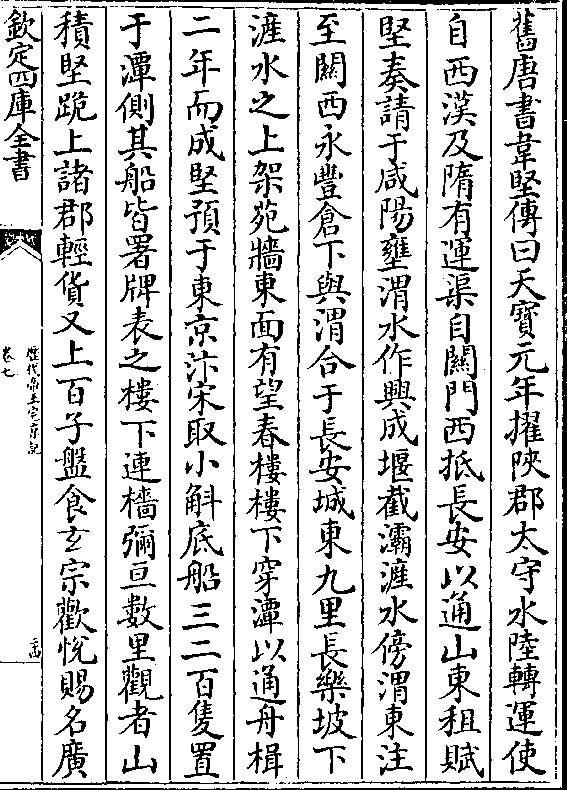 舊唐書韋堅傳曰天寳元年擢陝郡太守水陸轉運使
自西漢及隋有運渠自關門西抵長安以通山東租賦
堅奏請于咸陽壅渭水作興成堰截灞滻水傍渭東注
至關西永豐倉下與渭合于長安城東九里長樂坡下
滻水之上架苑牆東面有望春樓樓下穿潭以通舟楫
二年而成堅預于東京汴宋取小斛底船三二百隻置
于潭側其船皆署牌表之樓下連檣彌亘數里觀者山
積堅跪上諸郡輕貨又上百牙盤食玄宗歡悅賜名廣
欽定四庫全書
歷代帝王宅京記
卷七